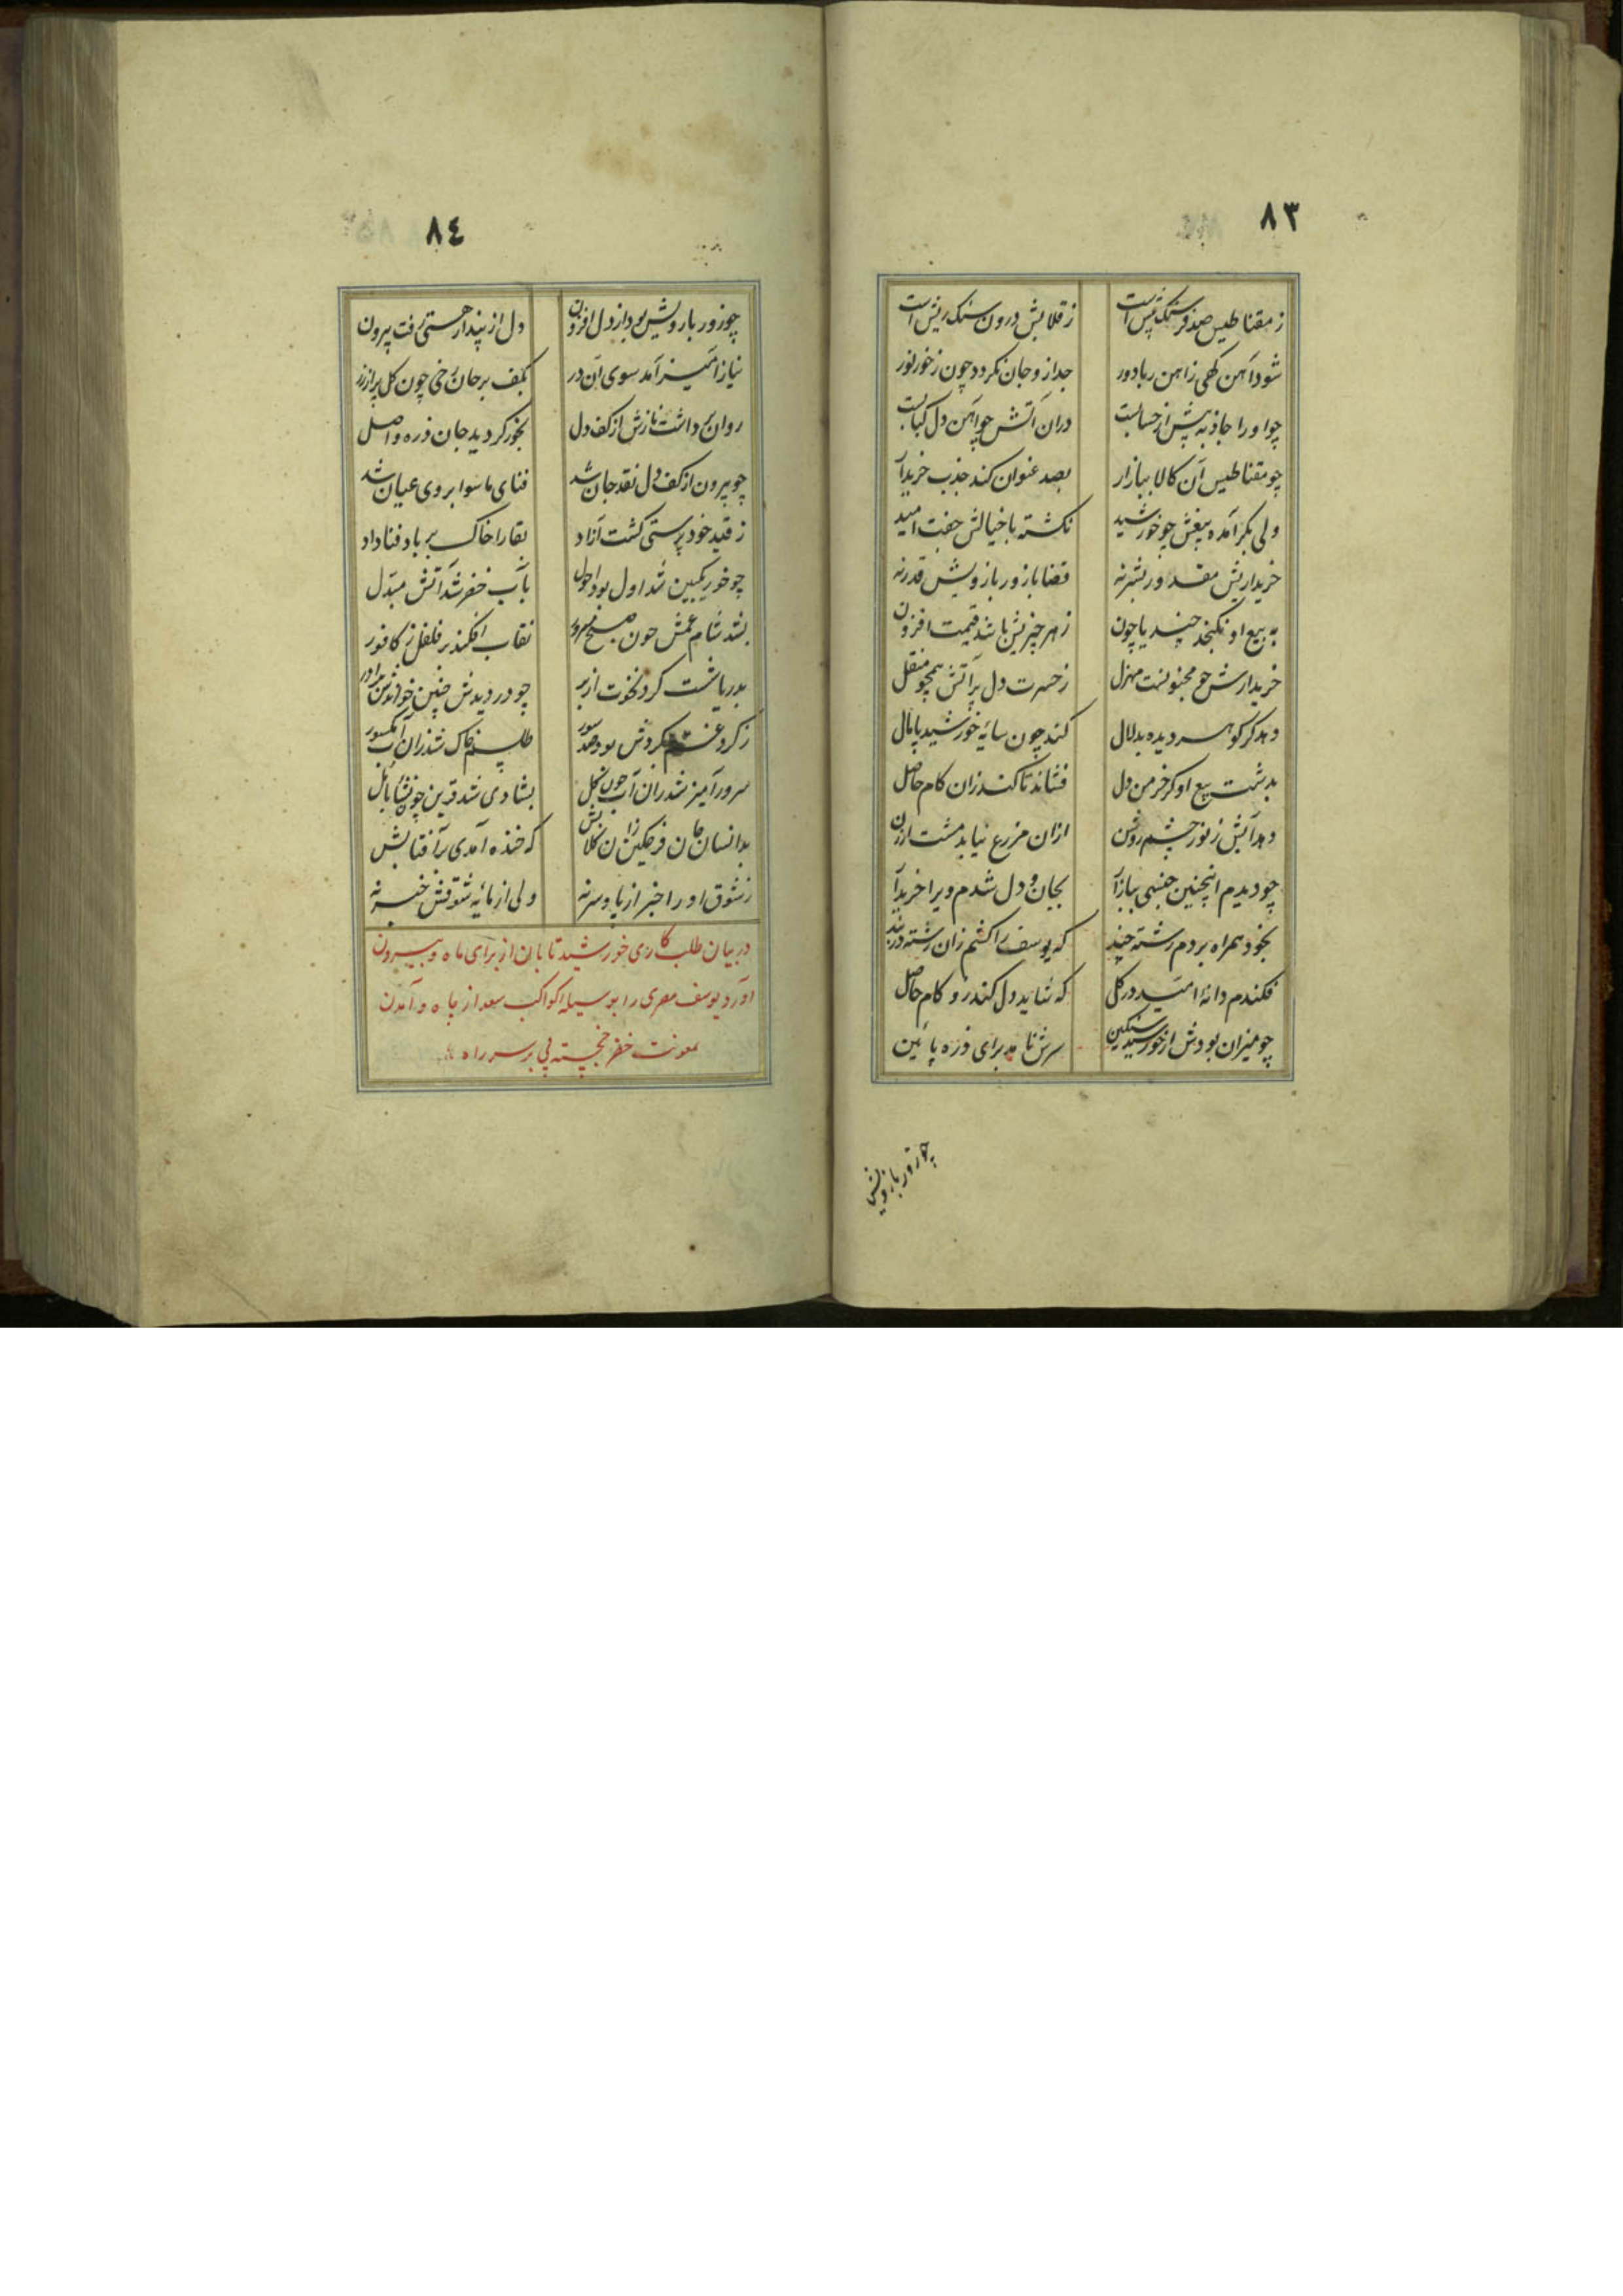 ٨٣
ز مقناطیس صد فرسنک پیش است ز قلابش درون سنک ریش است
شود آهن کهی زاهن ربا دور جدا زو جان نکردد چون ز خور نور
چو او را جاذبه پیش از حسابست دران آتش چو آهن دل کبابست
چو مقناطیس آن کالا ببازار بصد عنوان کند جذب خریدار
ولی بکر آمده بیعش چو خورشید نکشته با خیالش جفت امید
خریداریش مقدور بشر نه قضا با زور بازویش قدر نه
به بیع او نکنجد چند یا چون ز هر چیزیش باشد قیمت افزون
خریدارش چو مجنونست منزل ز حسرت دل پر آتش همچو منقل
دهد کر کوهر دیده بدلال کند چون سایه خورشید پامال
بدشت بیع او کر خرمن دل فشاند تا کند زان کام حاصل
دهد آبش ز نور چشم روشن ازان مزرع نیابد مشت ارزن
چو دیدم اینچنین جنسی ببازار بجان و دل شدم ویرا خریدار
بخود همراه بردم رشته چند که یوسف را کشم زان رشته در بند
فکندم دانه امید در کل که شاید دل کند زو کام حاصل
چو میزان بودش از خورشید سنکین سرش نامد برای ذره پائین
چو زور بازویش
٨٤
چو زور بازویش بود از دل افزون دل از پندار هستی رفت بیرون
نیاز آمیز آمد سوی آن در بکف بر جان رخی چون کل پر از زر
روان برداشت نازش از کف دل بخور کردید جان ذره واصل
چو بیرون از کف دل نقد جان شد فنای ماسوا بروی عیان شد
ز قید خود پرستی کشت آزاد بقا را خاک بر باد فنا داد
چو خور یکبین شد اول بود احول بآب خضر شد آتش مبدل
بشد شام غمش چون صبح مسرور نقاب افکند بر فلفل ز کافور
بدریا شست کرد نخوت از بر چو در دیدش چنین خواندش برادر
ز کرد غم کردش بود صد سور طلسم خاک شد زان آب مکسور
سرور آمیز شد زان آب چون کل بشادی شد قرین چون نشأه با مل
بدانسان جان فرحکین زان کلابش که خنده آمدی بر آفتابش
ز شوق او را خبر از پا و سر نه ولی از مایه شوقش خبر نه
در بیان طلب کاری خورشید تابان از برای ماه و بیرون
آورد یوسف مصری را بوسیله کواکب سعد از چاه و آمدن
معونت خضر خجسته پی بر سر راه